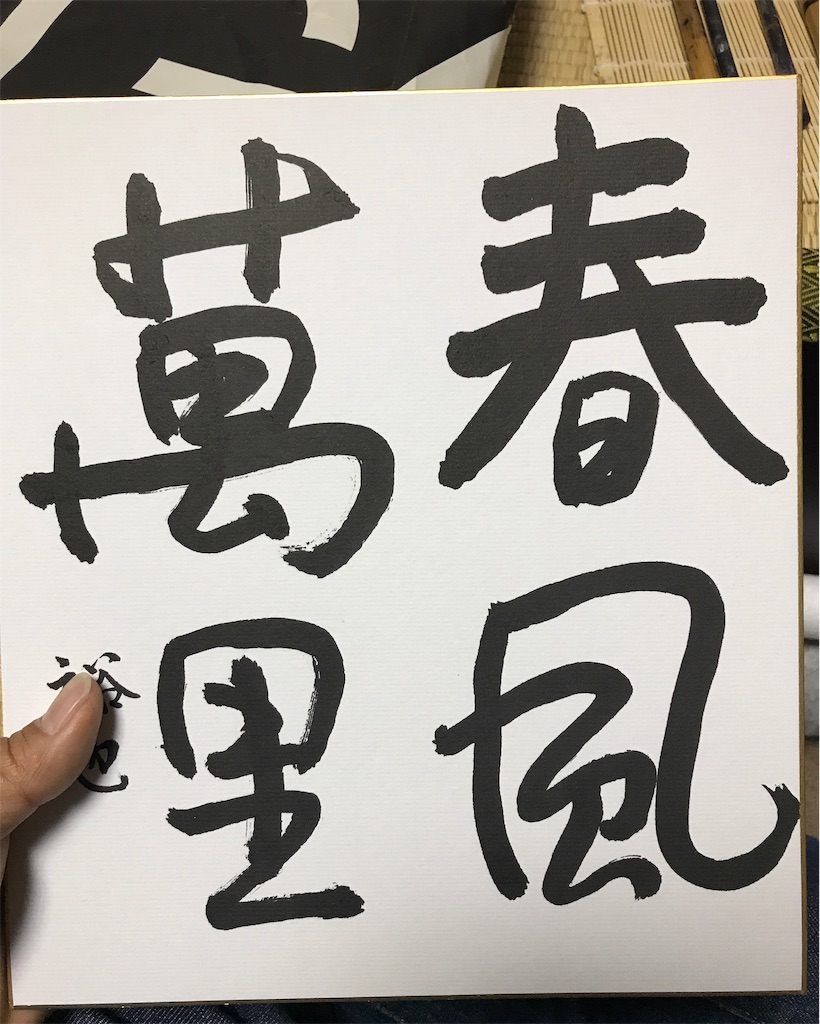 春風
萬里